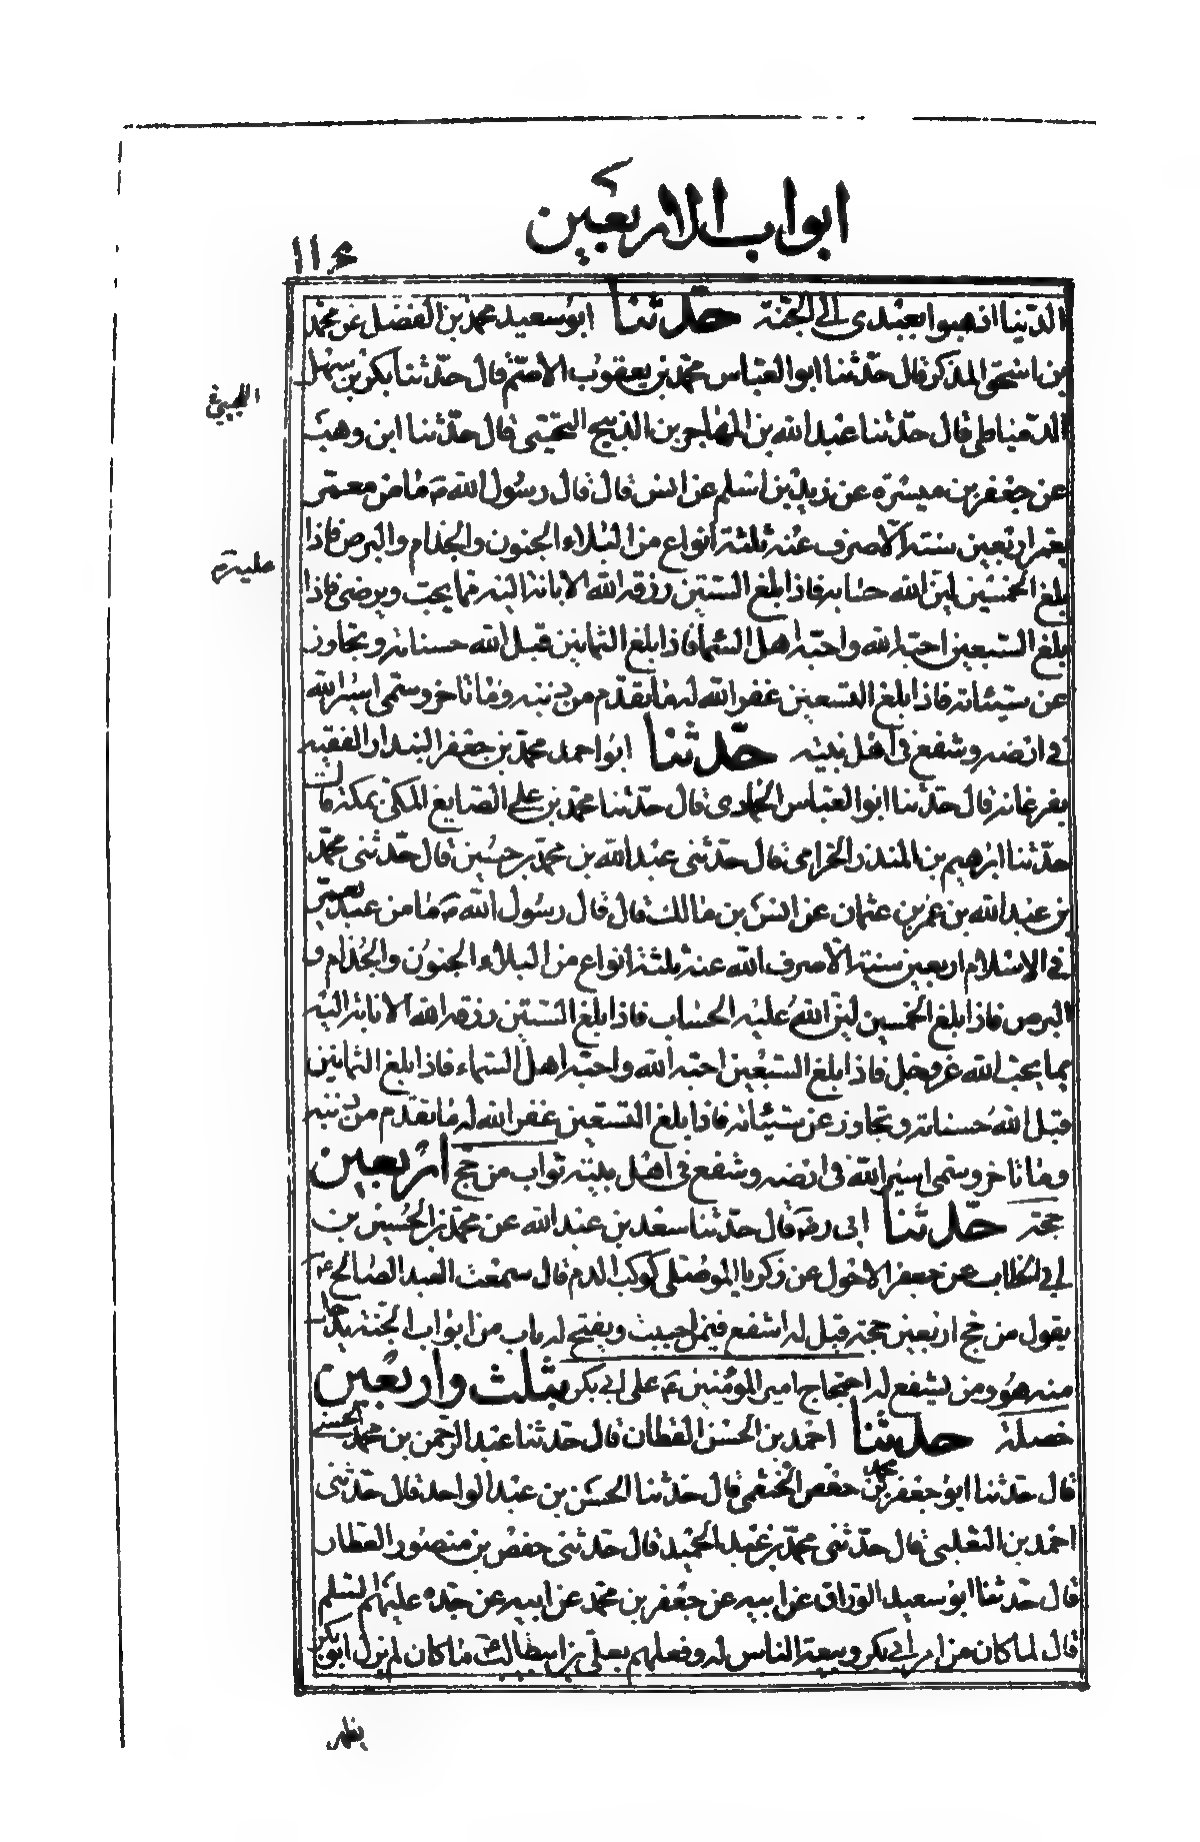 ابواب الاربعين
١١٤
الدنيا اذهبوا بعبدى الى الجنة حدثنا ابو سعيد محمد بن الفضل عن محمد
بن اسحق المذكر قال حدثنا ابو العباس محمد بن يعقوب الاصم قال حدثنا بكر بن سهل
الدمياطى قال حدثنا عبد الله بن المهاجر بن الذبيح التجيبى قال حدثنا ابن وهب
عن جعفر بن ميسرة عن زيد بن اسلم عن انس قال قال رسول الله ص ما من معمر
يعمر اربعين سنة الا صرف عنه ثلثة انواع من البلاء الجنون والجذام والبرص فاذا
بلغ الخمسين لين الله حسابه فاذا بلغ الستين رزقه الله الانابة اليه بما يحب ويرضى فاذا
بلغ السبعين احبه الله واحبه اهل السماء فاذا بلغ الثمانين قبل الله حسناته وتجاوز
عن سيئاته فاذا بلغ التسعين غفر الله له ما تقدم من ذنبه وما تاخر وسمى اسير الله
فى ارضه وشفع فى اهل بيته حدثنا ابو احمد محمد بن جعفر البندار الفقيه
بفرغانة قال حدثنا ابو العباس الحمادى قال حدثنا محمد بن على الصايغ المكى بمكة قالت
حدثنا ابرهيم بن المنذر الخزامى قال حدثنى عبد الله بن محمد بن حسين قال حدثنى محمد
بن عبد الله بن عمر بن عثمان عن انس بن مالك قال قال رسول الله ص ما من عبد يعمر
فى الاسلام اربعين سنة الا صرف الله عنه ثلثة انواع من البلاء الجنون والجذام و
البرص فاذا بلغ الخمسين لين الله عليه الحساب فاذا بلغ الستين رزقه الله الانابة اليه
بما يحب الله عز وجل فاذا بلغ السبعين احبه الله واحبه اهل السماء فاذا بلغ الثمانين
قبل الله حسناته وتجاوز عن سيئاته فاذا بلغ التسعين غفر الله له ما تقدم من ذنبه
وما تاخر وسمى اسير الله فى ارضه وشفع فى اهل بيته ثواب من حج اربعين
حجة حدثنا ابى ره قال حدثنا سعد بن عبد الله عن محمد بن الحسين بن
ابى الخطاب عن جعفر الاحول عن زكريا الموصلى كوكب الدم قال سمعت العبد الصالح ع
يقول من حج اربعين حجة قيل له اشفع فيمن احببت ويفتح له باب من ابواب الجنة يدخل
منه هو ومن يشفع له احتجاج امير المؤمنين ع على ابى بكر بثلث واربعين
خصلة حدثنا احمد بن الحسن القطان قال حدثنا عبد الرحمن بن محمد الحسنى
قال حدثنا ابو جعفر محمد بن حفص الخثعمى قال حدثنا الحسن بن عبد الواحد قال حدثنى
احمد بن التغلبى قال حدثنى محمد بن عبد الحميد قال حدثنى حفص بن منصور العطار
قال حدثنا ابو سعيد الوراق عن ابيه عن جعفر بن محمد عن ابيه عن جده عليهم السلم
قال لما كان من امر ابى بكر وبيعة الناس له وفعلهم بعلى بن ابيطالب ما كان لم يزل ابو بكر
يظهر